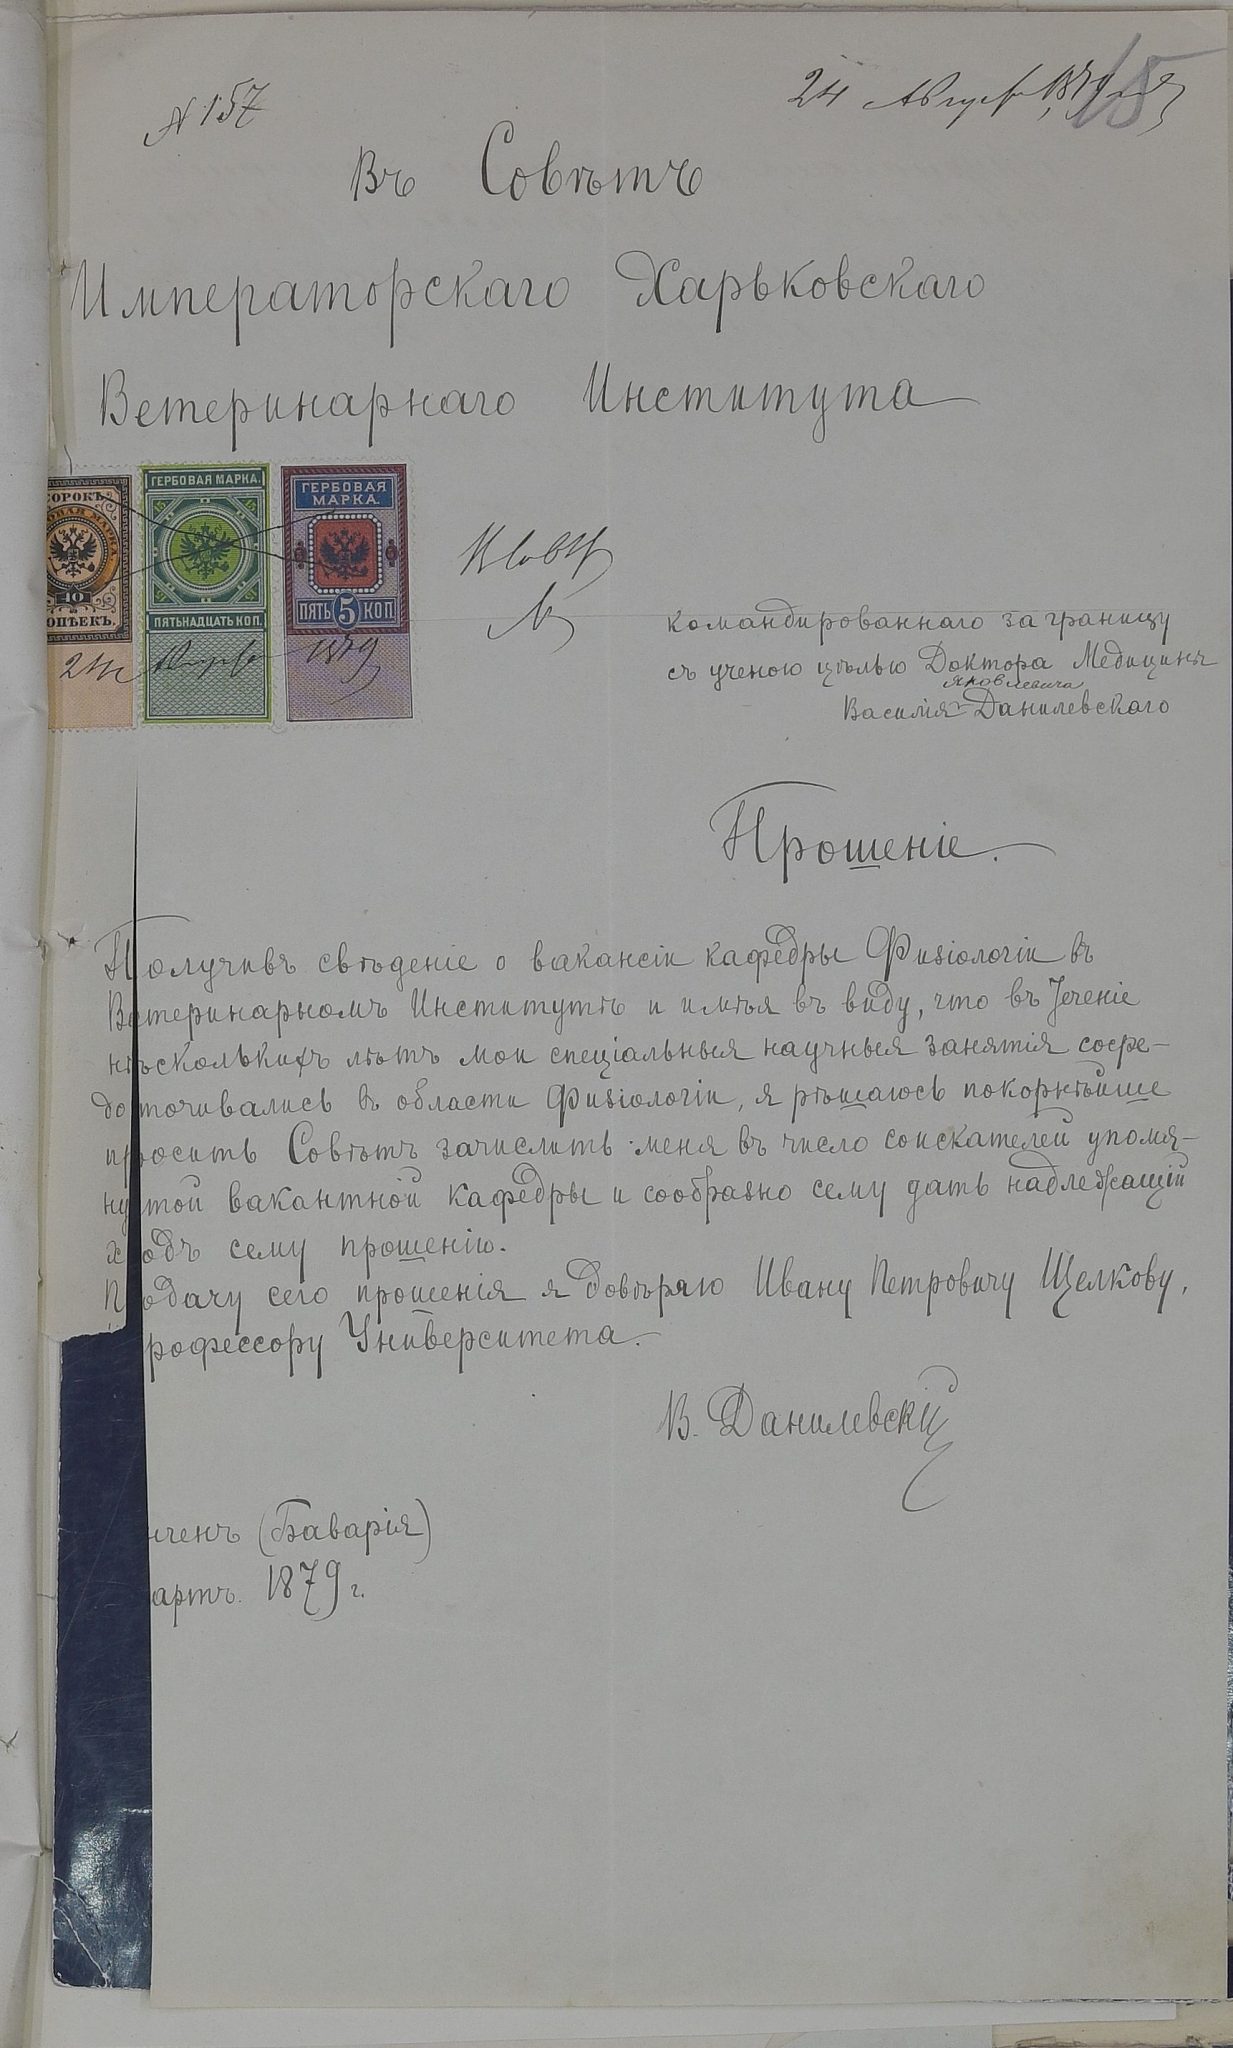 № 157
24 Августа 1879 года
15
Въ Совѣтъ
Императорскаго Харьковскаго
Ветеринарнаго Института
СОРОКЪ
ГЕРБОВАЯ МАРКА.
ГЕРБОВАЯ
МАРКА.
40
КОПѢЕКЪ.
ПЯТНАДЦАТЬ КОП.
ПЯТЬ 5 КОП
24 Августа 1879
командированнаго за границу
съ ученою цѣлью Доктора Медицины
Яковлевича
Василія Данилевскаго
Прошеніе.
Получивъ свѣденіе о вакансіи кафедры Физіологіи въ
Ветеринарномъ Институтѣ и имѣя въ виду, что въ теченіе
нѣсколькихъ лѣтъ мои спеціальныя научныя занятія сосре-
доточивались въ области Физіологіи, я рѣшаюсь покорнѣйше
просить Совѣтъ зачислить меня въ число соискателей упомя-
нутой вакантной кафедры и сообразно сему дать надлежащій
ходъ сему прошенію.
Подачу сего прошенія я довѣряю Ивану Петровичу Щелкову,
рофессору Университета.
В. Данилевскій
нхенъ (Баварія)
артъ. 1879 г.